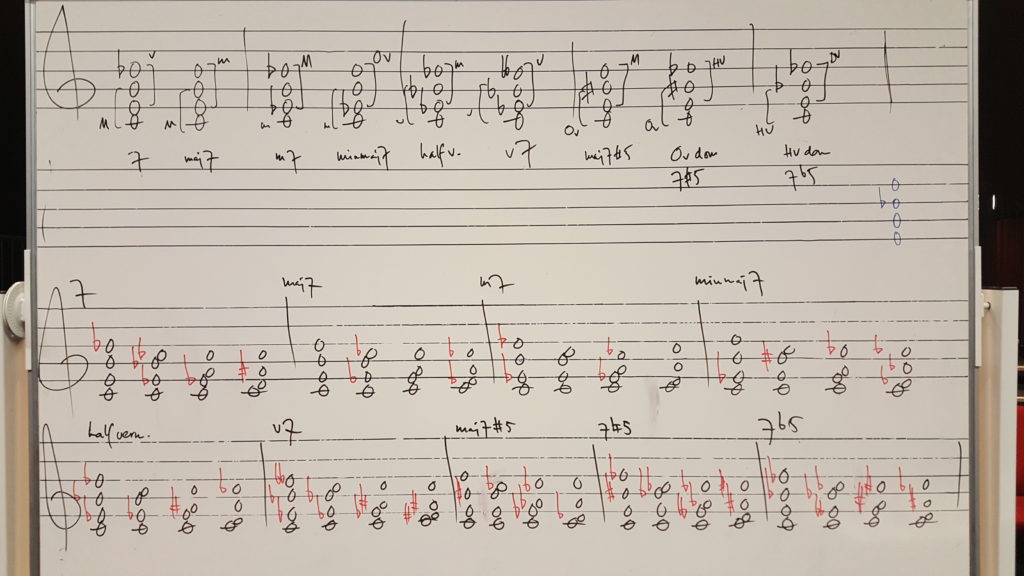 v m M Ov m v M HV DV
M M m m v v Ov Ov HV
7 maj7 m7 minmaj7 half v. v7 maj7#5 Ov dom Hv dom
7#5 7b5
7 maj7 m7 minmaj7
half verm. v7 maj7#5 7#5 7b5